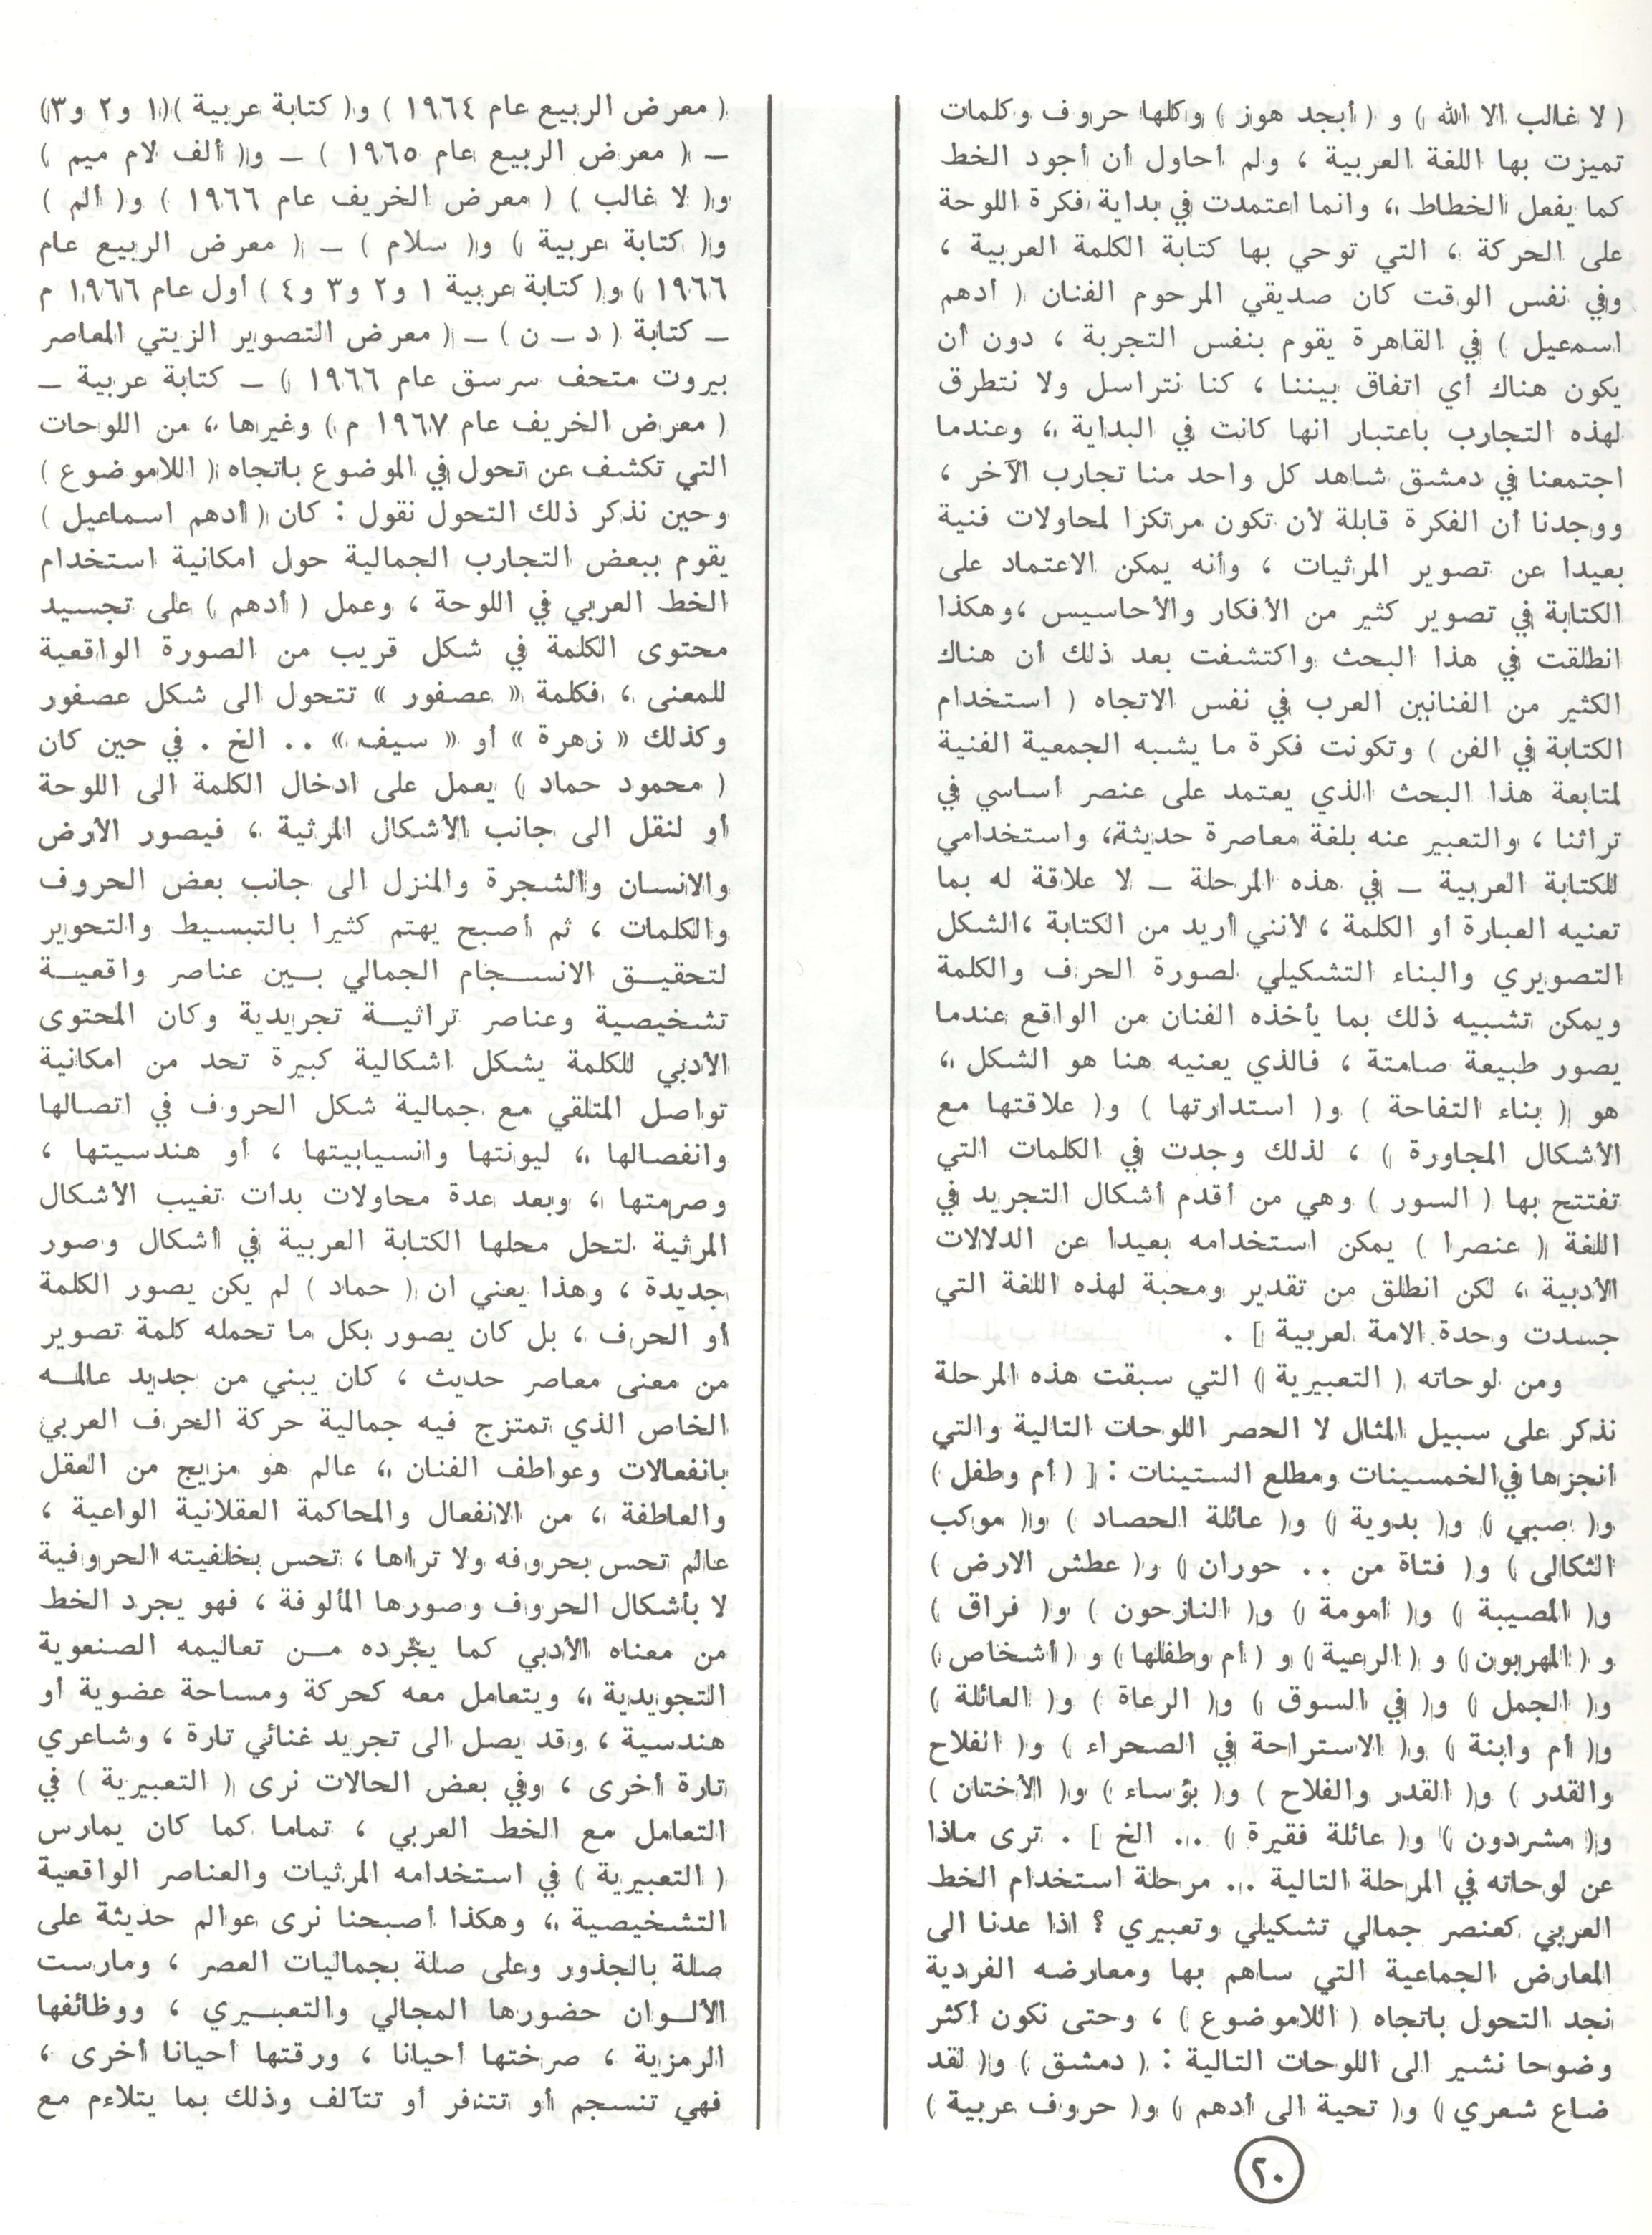 ( لا غالب الا الله ) و ( أبجد هوز ) وكلها حروف وكلمات
تميزت بها اللغة العربية ، ولم أحاول أن أجود الخط
كما يفعل الخطاط ، وانما اعتمدت في بداية فكرة اللوحة
على الحركة ، التي توحي بها كتابة الكلمة العربية ،
وفي نفس الوقت كان صديقي المرحوم الفنان ( أدهم
اسمعيل ) في القاهرة يقوم بنفس التجربة ، دون أن
يكون هناك أي اتفاق بيننا ، كنا نتراسل ولا نتطرق
لهذه التجارب باعتبار انها كانت في البداية ، وعندما
اجتمعنا في دمشق شاهد كل واحد منا تجارب الآخر ،
ووجدنا أن الفكرة قابلة لأن تكون مرتكزا لمحاولات فنية
بعيدا عن تصوير المرئيات ، وأنه يمكن الاعتماد على
الكتابة في تصوير كثير من الأفكار والأحاسيس ، وهكذا
انطلقت في هذا البحث واكتشفت بعد ذلك أن هناك
الكثير من الفنانين العرب في نفس الاتجاه ( استخدام
الكتابة في الفن ) وتكونت فكرة ما يشبه الجمعية الفنية
لمتابعة هذا البحث الذي يعتمد على عنصر أساسي في
تراثنا ، والتعبير عنه بلغة معاصرة حديثة، واستخدامي
للكتابة العربية ــ في هذه المرحلة ــ لا علاقة له بما
تعنيه العبارة أو الكلمة ، لأنني أريد من الكتابة ، الشكل
التصويري والبناء التشكيلي لصورة الحرف والكلمة
ويمكن تشبيه ذلك بما يأخذه الفنان من الواقع عندما
يصور طبيعة صامتة ، فالذي يعنيه هنا هو الشكل ،
هو ( بناء التفاحة ) و( استدارتها ) و( علاقتها مع
الأشكال المجاورة ) ، لذلك وجدت في الكلمات التي
تفتتح بها ( السور ) وهي من أقدم أشكال التجريد في
اللغة ( عنصرا ) يمكن استخدامه بعيدا عن الدلالات
الأدبية ، لكن انطلق من تقدير ومحبة لهذه اللغة التي
جسدت وحدة الامة لعربية ] .
ومن لوحاته ( التعبيرية ) التي سبقت هذه المرحلة
نذكر على سبيل المثال لا الحصر اللوحات التالية والتي
أنجزها في الخمسينات ومطلع الستينات : [ ( أم وطفل )
و( صبي ) و( بدوية ) و( عائلة الحصاد ) و( موكب
الثكالى ) و( فتاة من .. حوران ) و( عطش الارض )
و( المصيبة ) و( أمومة ) و( النازحون ) و( فراق )
و ( المهربون ) و ( الرعية ) و ( أم وطفلها ) و ( أشخاص )
و( الجمل ) و( في السوق ) و( الرعاة ) و( العائلة )
و( أم وابنة ) و( الاستراحة في الصحراء ) و( الفلاح
والقدر ) و( القدر والفلاح ) و( بؤساء ) و( الأختان )
و( مشردون ) و( عائلة فقيرة ) ... الخ ] . ترى ماذا
عن لوحاته في المرحلة التالية .. مرحلة استخدام الخط
العربي كعنصر جمالي تشكيلي وتعبيري ؟ اذا عدنا الى
المعارض الجماعية التي ساهم بها ومعارضه الفردية
نجد التحول باتجاه ( اللاموضوع ) ، وحتى نكون أكثر
وضوحا نشير الى اللوحات التالية : ( دمشق ) و( لقد
ضاع شعري ) و( تحية الى أدهم ) و( حروف عربية )
( معرض الربيع عام ١٩٦٤ ) و( كتابة عربية )(١ و٢ و٣)
ــ ( معرض الربيع عام ١٩٦٥ ) ــ و( ألف لام ميم )
و( لا غالب ) ( معرض الخريف عام ١٩٦٦ ) و( الم )
و( كتابة عربية ) و( سلام ) ــ ( معرض الربيع عام
١٩٦٦ ) و( كتابة عربية ١ و٢ و٣ و٤ ) أول عام ١٩٦٦ م
ــ كتابة ( د ــ ن ) ــ ( معرض التصوير الزيتي المعاصر
بيروت متحف سرسق عام ١٩٦٦ ) ــ كتابة عربية ــ
( معرض الخريف عام ١٩٦٧ م ) وغيرها ، من اللوحات
التي تكشف عن تحول في الموضوع باتجاه ( اللاموضوع )
وحين نذكر ذلك التحول نقول : كان ( أدهم اسماعيل )
يقوم ببعض التجارب الجمالية حول امكانية استخدام
الخط العربي في اللوحة ، وعمل ( أدهم ) على تجسيد
محتوى الكلمة في شكل قريب من الصورة الواقعية
للمعنى ، فكلمة « عصفور » تتحول الى شكل عصفور
وكذلك « زهرة » أو « سيف » .. الخ . في حين كان
( محمود حماد ) يعمل على ادخال الكلمة الى اللوحة
أو لنقل الى جانب الأشكال المرئية ، فيصور الأرض
والانسان والشجرة والمنزل الى جانب بعض الحروف
والكلمات ، ثم أصبح يهتم كثيرا بالتبسيط والتحوير
لتحقيــق الانســجام الجمالي بــين عناصر واقعيــة
تشخيصية وعناصر تراثيــة تجريدية وكان المحتوى
الأدبي للكلمة يشكل اشكالية كبيرة تحد من امكانية
تواصل المتلقي مع جمالية شكل الحروف في اتصالها
وانفصالها ، ليونتها وانسيابيتها ، أو هندسيتها ،
وصرمتها ، وبعد عدة محاولات بدأت تغيب الأشكال
المرئية لتحل محلها الكتابة العربية في أشكال وصور
جديدة ، وهذا يعني ان ( حماد ) لم يكن يصور الكلمة
أو الحرف ، بل كان يصور بكل ما تحمله كلمة تصوير
من معنى معاصر حديث ، كان يبني من جديد عالمــه
الخاص الذي تمتزج فيه جمالية حركة الحرف العربي
بانفعالات وعواطف الفنان ، عالم هو مزيج من العقل
والعاطفة ، من الانفعال والمحاكمة العقلانية الواعية ،
عالم تحس بحروفه ولا تراها ، تحس بخلفيته الحروفية
لا بأشكال الحروف وصورها المألوفة ، فهو يجرد الخط
من معناه الأدبي كما يجرده مــن تعاليمه الصنعوية
التجويدية ، ويتعامل معه كحركة ومساحة عضوية أو
هندسية ، وقد يصل الى تجريد غنائي تارة ، وشاعري
تارة أخرى ، وفي بعض الحالات نرى ( التعبيرية ) في
التعامل مع الخط العربي ، تماما كما كان يمارس
( التعبيرية ) في استخدامه المرئيات والعناصر الواقعية
التشخيصية ، وهكذا أصبحنا نرى عوالم حديثة على
صلة بالجذور وعلى صلة بجماليات العصر ، ومارست
الألــوان حضورها المجالي والتعبــيري ، ووظائفها
الرمزية ، صرختها أحيانا ، ورقتها أحيانا أخرى ،
فهي تنسجم أو تتنفر أو تتآلف وذلك بما يتلاءم مع
٢٠